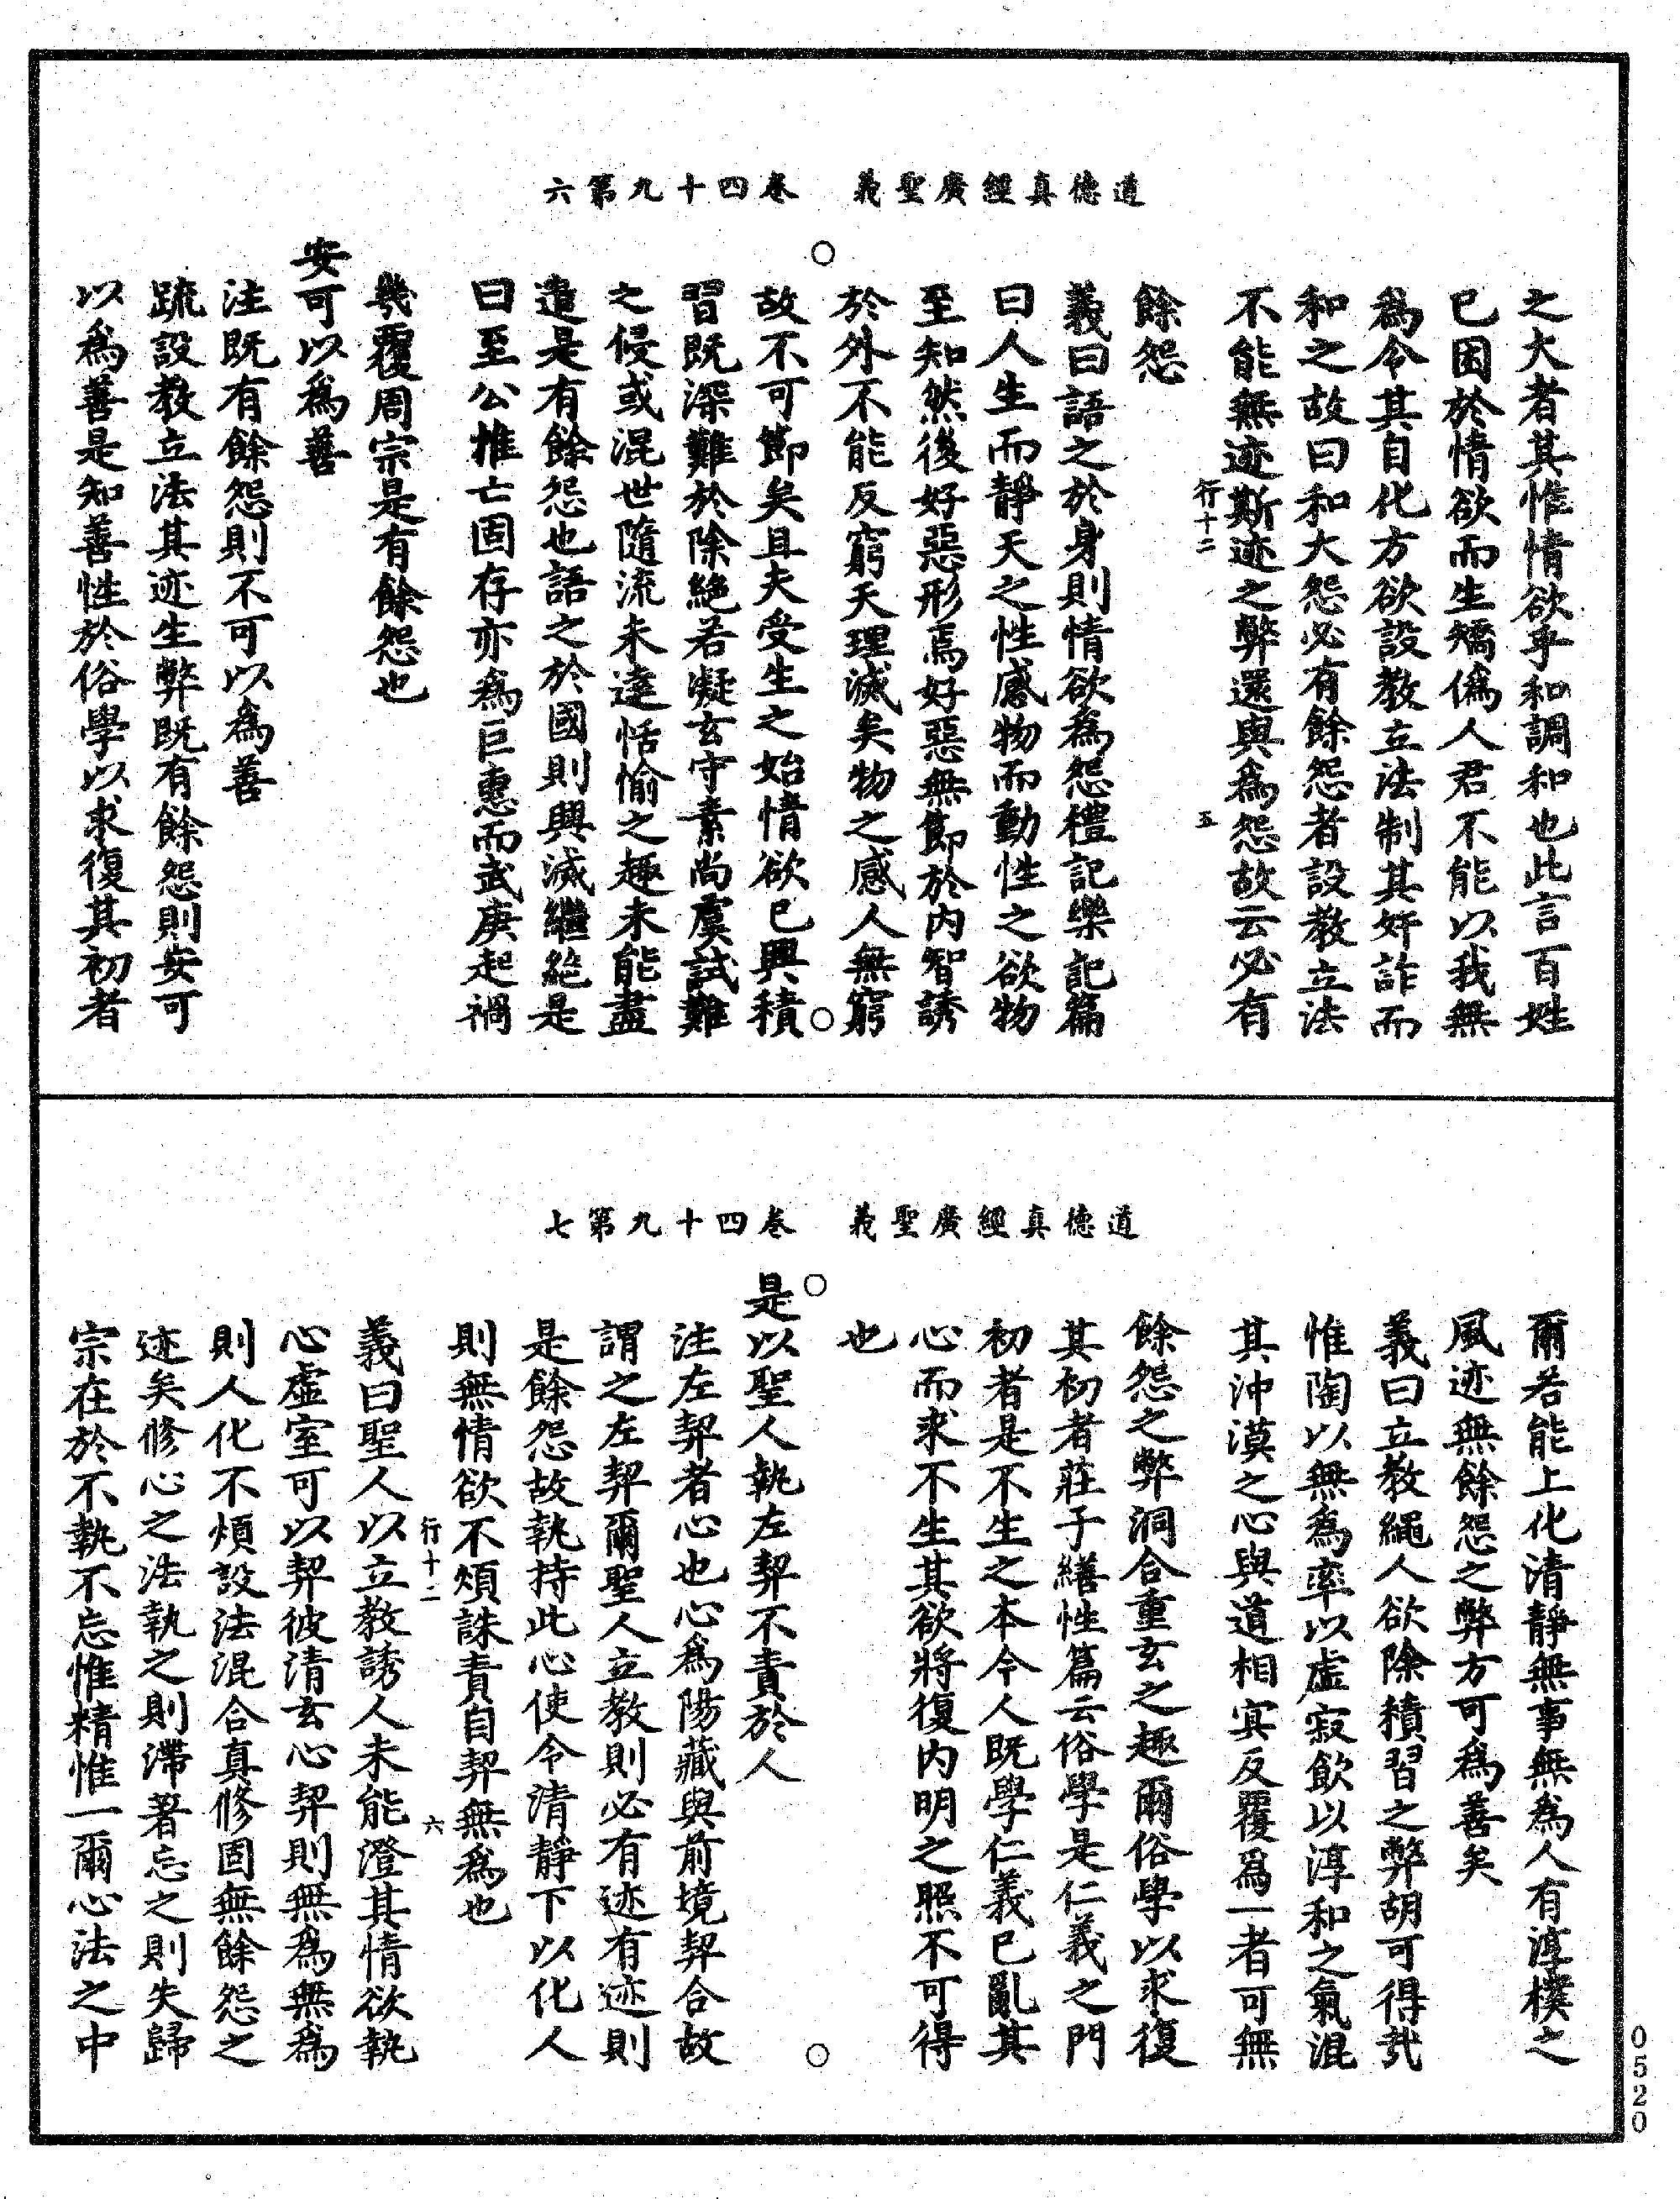 道德真經廣聖義　卷四十九第六
之大者其惟情欲乎和調和也此言百姓
已困於情欲而生矯偽人君不能以我無
為令其自化方欲設教立法制其奸詐而
和之故曰和大怨必有餘怨者設教立法
不能無迹斯迹之弊還與為怨故云必有
行十二　五
餘怨
義曰語之於身則情欲為怨禮記樂記篇
曰人生而靜天之性感物而動性之欲物
至知然後好惡形焉好惡無節於內智誘
於外不能反窮天理滅矣物之感人無窮
故不可節矣且夫受生之始情欲已興積
習既深難於除絕若凝玄守素尚虞試難
之侵或混世隨流未達恬愉之趣未能盡
遣是有餘怨也語之於國則興滅繼絕是
曰至公推亡固存亦為巨惠而武庚起禍
幾覆周宗是有餘怨也
安可以為善
注既有餘怨則不可以為善
疏設教立法其迹生弊既有餘怨則安可
以為善是知善性於俗學以求復其初者
道德真經廣聖義　卷四十九第七
爾若能上化清靜無事無為人有淳樸之
風迹無餘怨之弊方可為善矣
義曰立教繩人欲除積習之弊胡可得哉
惟陶以無為率以虛寂飲以淳和之氣混
其沖漠之心與道相冥反覆為一者可無
餘怨之弊洞合重玄之趣爾俗學以求復
其初者莊子繕性篇云俗學是仁義之門
初者是不生之本今人既學仁義已亂其
心而求不生其欲將復內明之照不可得
也
是以聖人執左契不責於人
注左契者心也心為陽藏與前境契合故
謂之左契爾聖人立教則必有迹有迹則
是餘怨故執持此心使令清靜下以化人
則無情欲不煩誅責自契無為也
行十二　六
義曰聖人以立教誘人未能澄其情欲執
心虛室可以契彼清玄心契則無為無為
則人化不煩設法混合真修固無餘怨之
迹矣修心之法執之則滯著忘之則失歸
宗在於不執不忘惟精惟一爾心法之中
0520